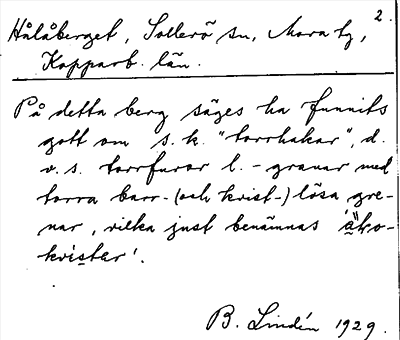 2.
Hålåberget, Sollerö sn, Mora tg,
Kopparb. län.
På detta berg säges ha funnits
gott om s.k. "torrhakar", d.
v.s. torrfuror l. - granar med
torra barr- (och kvist-) lösa gre-
nar, vilka just benämnas 'äko-
kvistar'.
B. Lindén 1929.